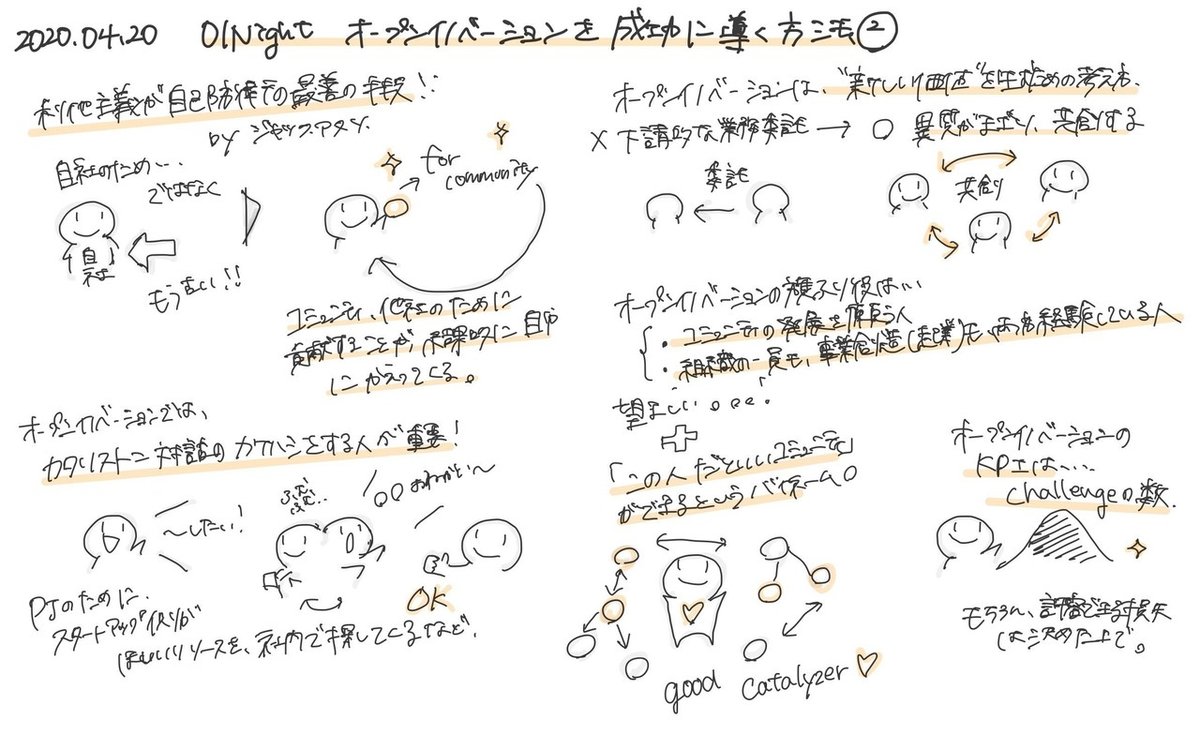 2020.04.20 OINight オープンイノベーションを成功に導く方法②
利他主義が自己防衛の最善の手段!!
by ジャックアタリ.
自社のため…
ではなく
自社
もうまい!!
for community
コミュニティ、他社のために
貢献することが、結果的に自分
にかえってくる。
オープンイノベーションでは、
カタリスト＝対話のカケハシをする人が重要!
〜したい!
ふむふむ…
○○おねがい〜
OK
PJのために、
スタートアップ側が
ほしいリソースを、社内で探してくるなど.
オープンイノベーションは、"新しい価値"を生むための考え方.
× 下請的な業務委託 → ○ 異質がまざり、共創する
委託
共創
オープンイノベーションの旗ふり役は…
・コミュニティの発展を願う人
・組織の一員も、事業創造(起業)も、両方経験している人
望ましい。。。!
「この人だといいコミュニティ
ができるというバイネーム○
good catalyzer ♡
オープンイノベーションの
KPIは…
challengeの数.
もちろん、許容できる損失
は決めた上で。